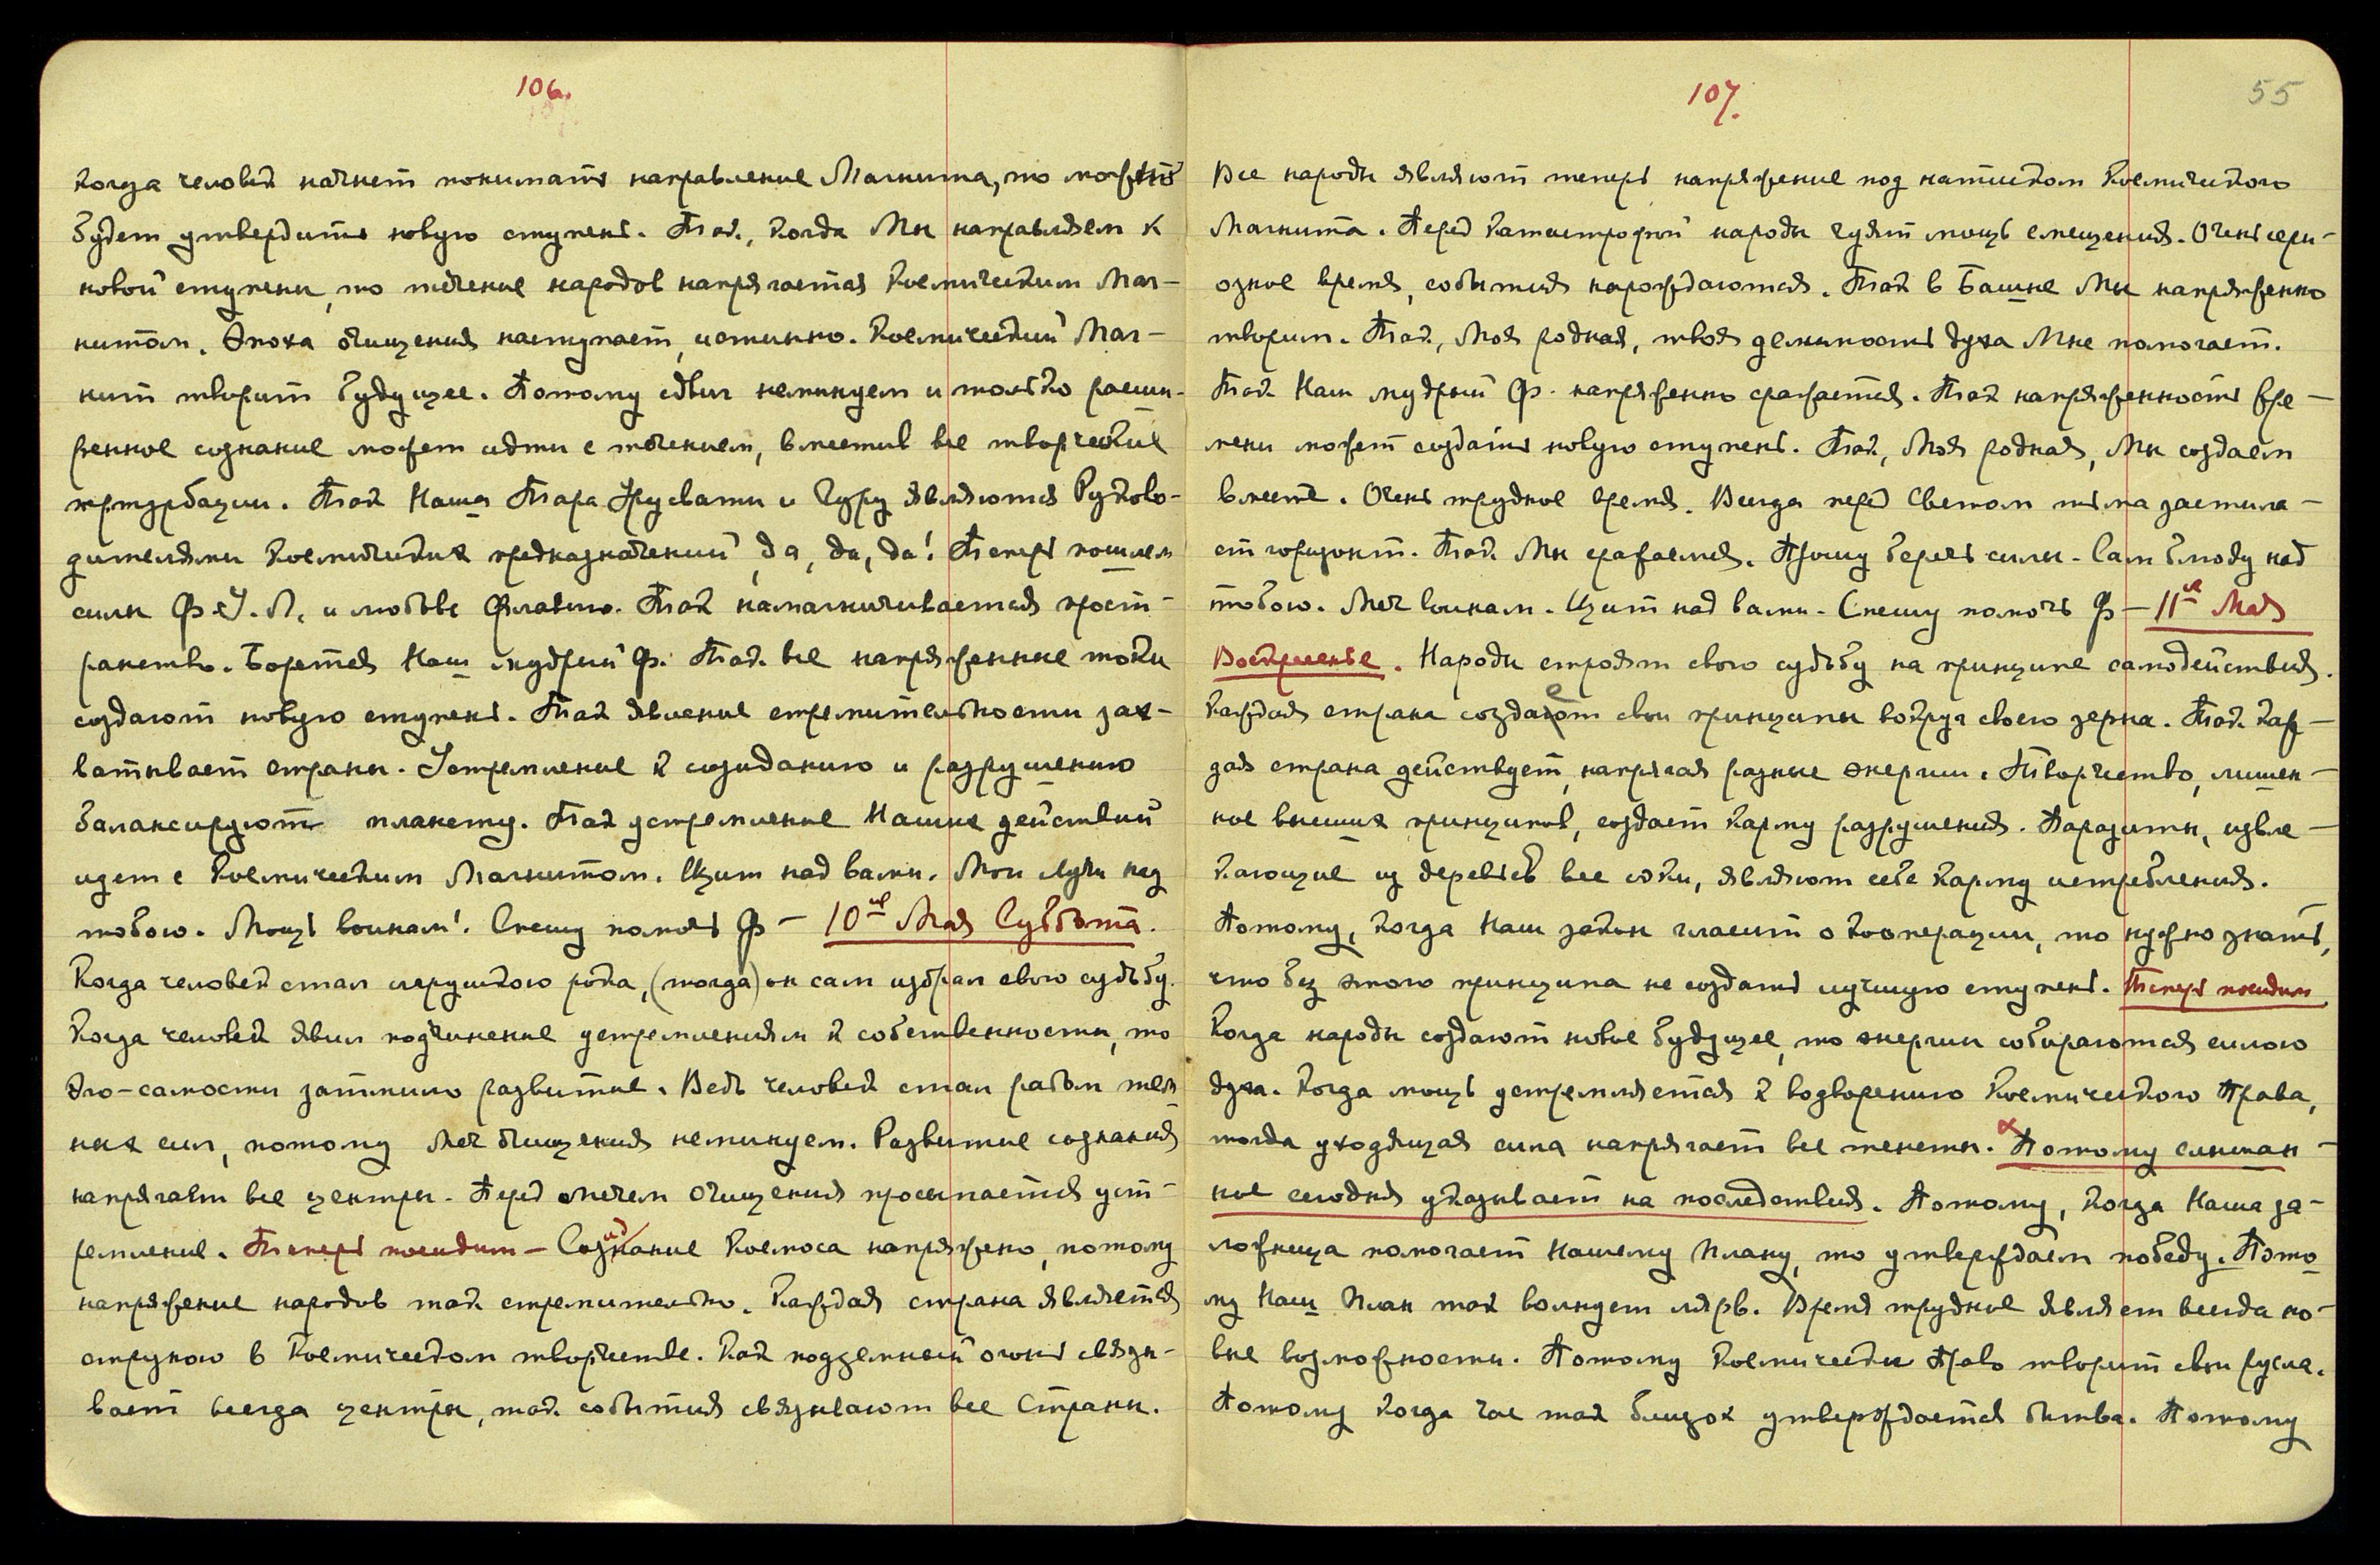 106.
Когда человек начнет понимать направление Магнита, то можно
будет утвердить новую ступень. Так, когда Мы направляем к
новой ступени, то течение народов напрягается Космическим Маг-
нитом. Эпоха очищения наступает, истинно. Космический Маг-
нит творит будущее. Потому сдвиг неминуем и только расши-
ренное сознание может идти с течением, вместив все творческие
пертурбации. Так Наша Тара Урусвати и Гуру являются Руково-
дителями Космических предназначений, да, да, да! Теперь пошлем
силы Ф. У. Л. и любовь Флавию. Так намагничивается прост-
ранство. Борется Наш мудрый Ф. Так все напряженные токи
создают новую ступень. Так явление стремительности зах-
ватывает страны. Устремление к созиданию и разрушению
балансируют планету. Так устремление Наших действий
идет с Космическим Магнитом. Щит над вами. Мои лучи над
тобою. Мощь воинам! Спешу помочь Ф — 10ое Мая Суббота.
Когда человек стал людского рода, (тогда) он сам избрал свою судьбу.
Когда человек явил подчинение устремлениям к собственности, то
эго-самости затмило развитие. Ведь человек стал рабом тем
ных сил, потому меч очищения неминуем. Развитие сознания
напрягает все центры. Перед мечем очищения просыпается уст-
ремление. Теперь посидим — Создание Космоса напряжено, потому
напряжение народов так стремительно. Каждая страна является
струною в Космическом творчестве. Как подземный огонь связы-
вает всегда центры, так события связывают все Страны.
107.
55
Все народы являют теперь напряжение под натиском Космического
Магнита. Перед Катастрофой народы чуят мощь смещения. Очень сери-
озное время, события нарождаются. Так в Башне Мы напряженно
творим. Так, Моя родная, твоя уелинность духа Мне помогает.
Так Наш мудрый Ф. напряженно сражается. Так напряженность вре-
мени может создать новую ступень. Так, Моя родная, Мы создаем
вместе. Очень трудное время. Всегда перед Светом тьма застила-
ет горизонт. Так Мы сражаемся. Прошу беречь силы. Сам блюду над
тобою. Меч воинам. Щит над вами. Спешу помочь Ф — 11ое Мая
Воскресенье. Народы строят свою судьбу на принципе самодействия.
Каждая страна создает свои принципы вокруг своего зерна. Так каж-
дая страна действует, напрягая разные энергии. Творчество, лишен-
ное высших принципов, создает Карму разрушения. Паразиты, извле-
кающие из деревьев все соки, являют себе Карму истребления.
Потому, когда Наш закон гласит о Кооперации, то нужно знать,
что без этого принципа не создать лучшую ступень. Теперь посидим
Когда народы создают новое будущее, то энергии собираются силою
духа. Когда мощь устремляется к водворению Космического Права,
тогда уходящая сила напрягает все тенеты. Потому слышан-
ное сегодня указывает на последствия. Потому, когда Наша за-
ложница помогает Нашему Плану, то утверждаем победу. Пото
му Наш План так волнует лярв. Время трудное являет всегда но-
вые возможности. Потому Космическое Право творит свои русла.
Потому когда час так близок утверждается битва. Потому